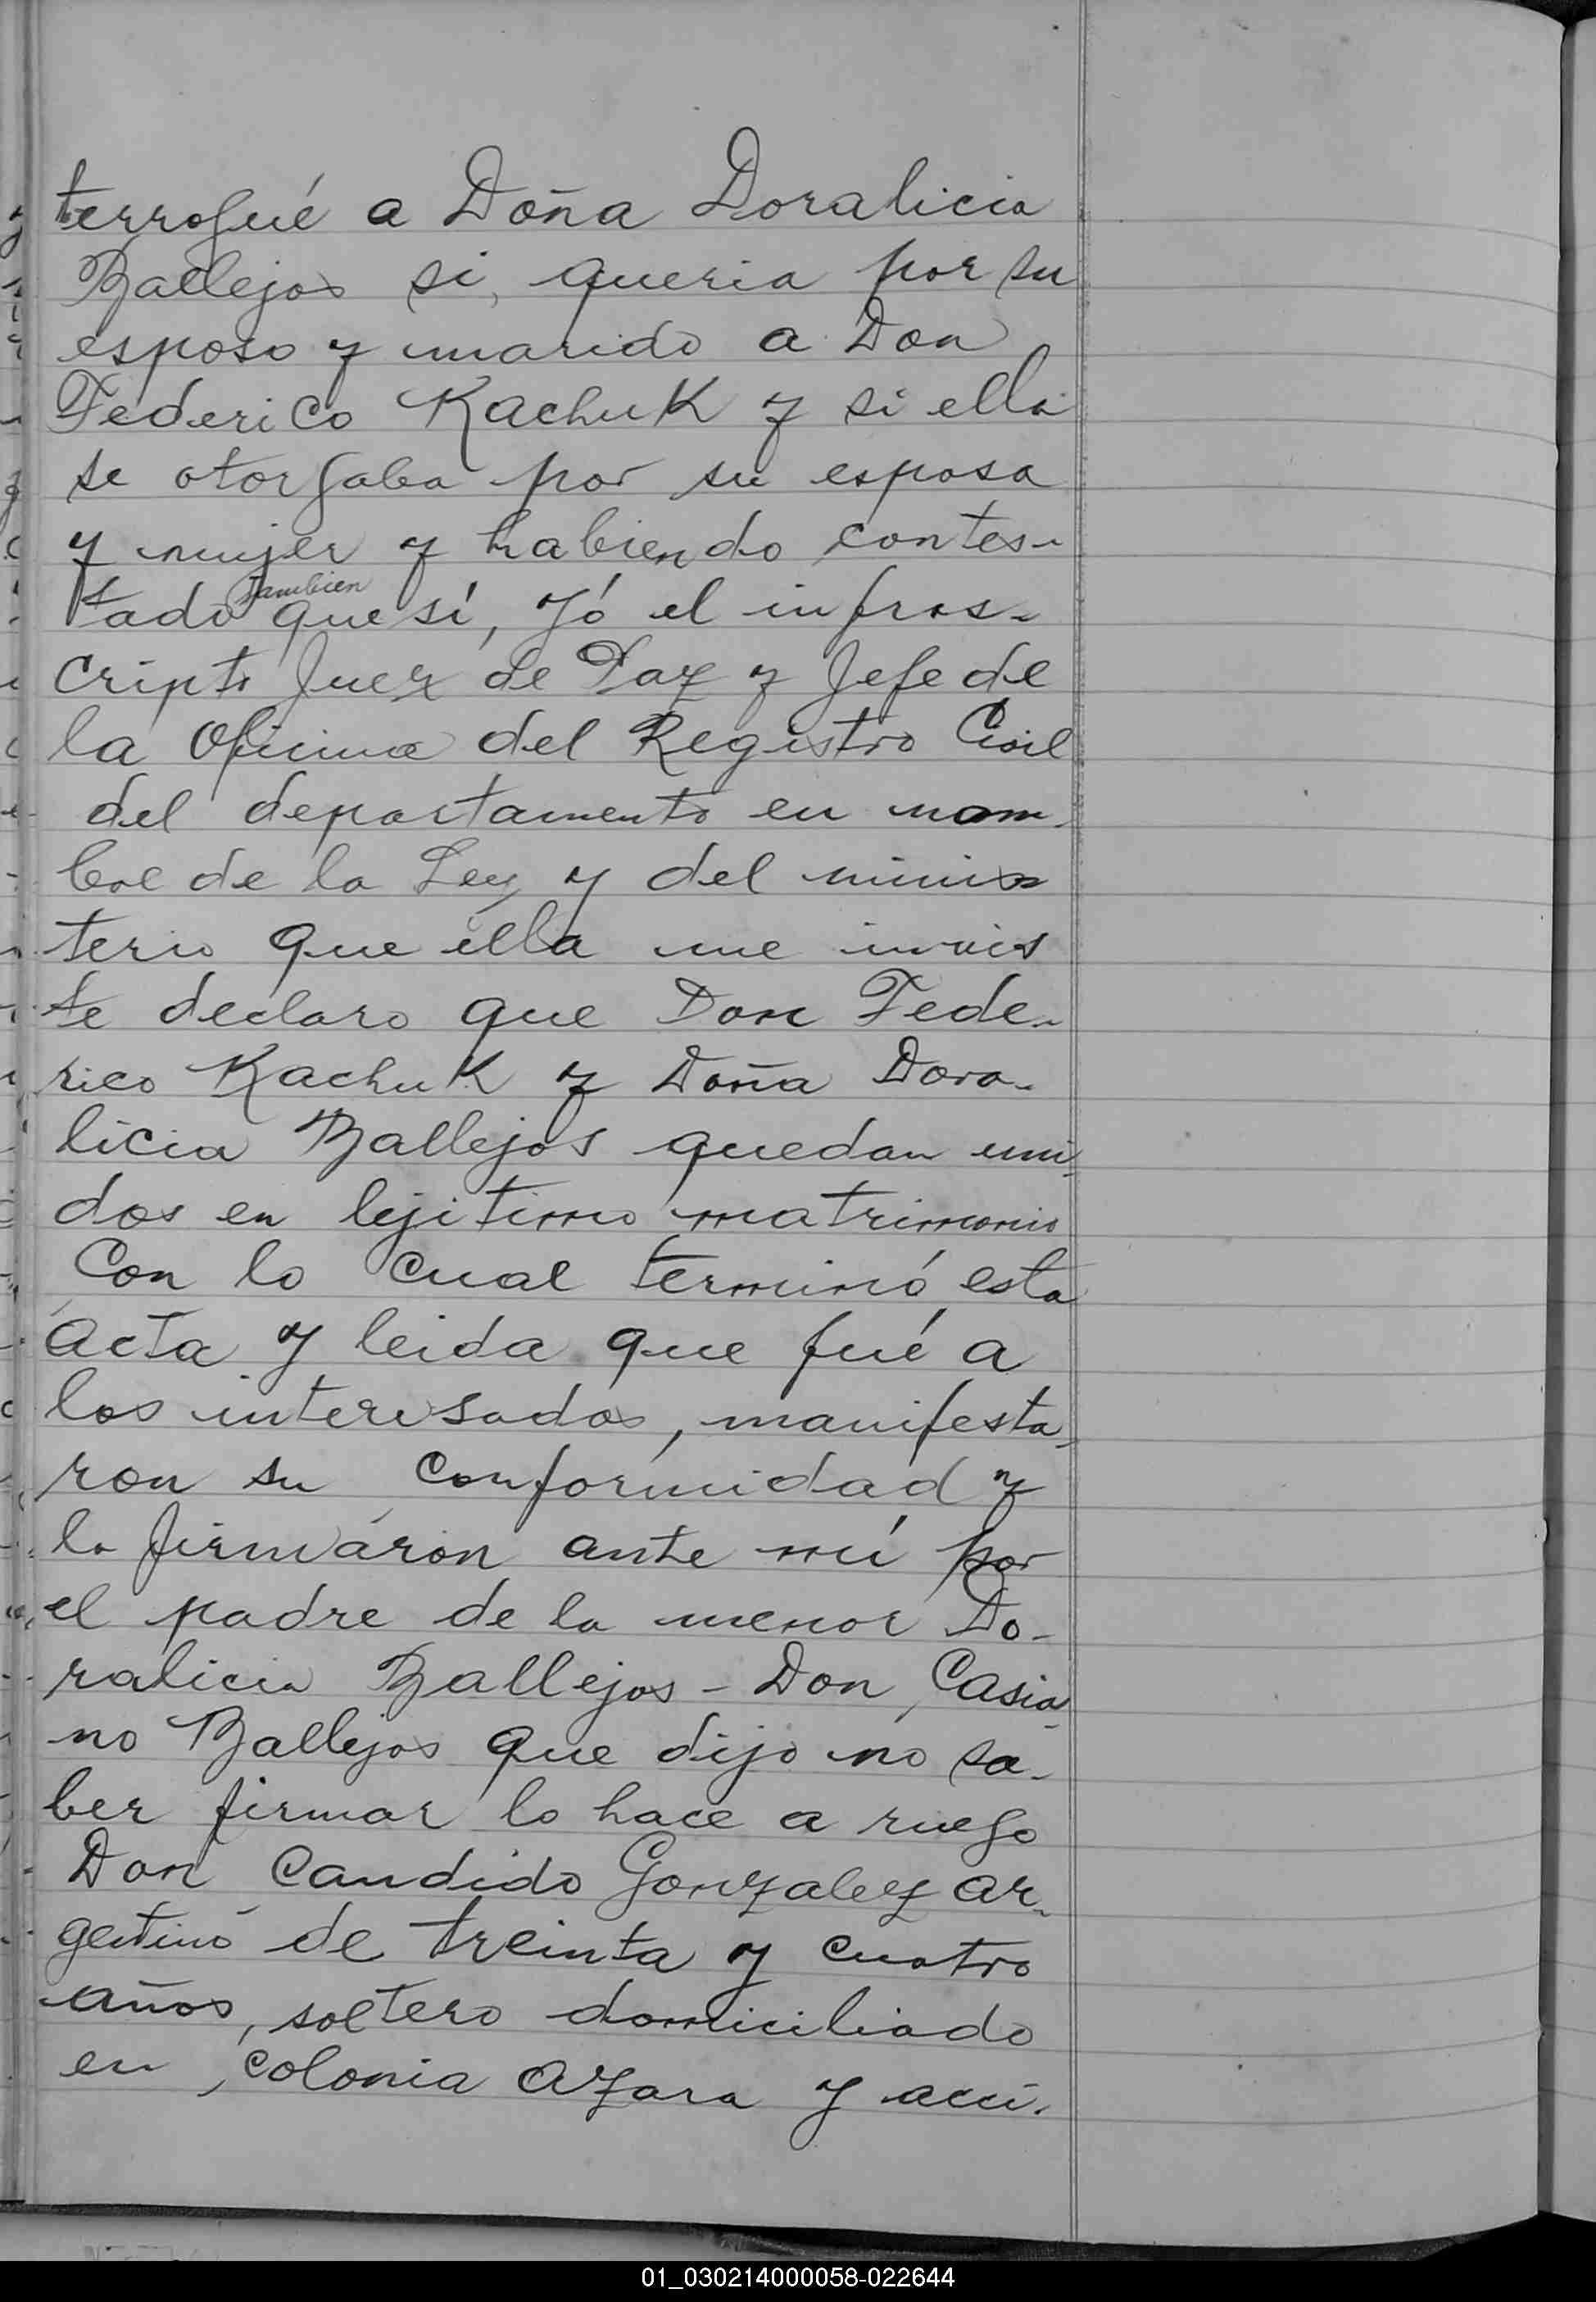 terrogué a Doña Doralicia
Ballejos si, queria por su
esposo y marido a Don
Federico Kachuk y si ella
se otorgaba por su esposa
y mujer y habiendo contes-
tado tambien que sí, Yó el infras-
cripto Juez de Paz y Jefe de
la Oficina del Registro Civil
del departamento en nom-
bre de la Ley y del minis
terio que ella me invis
te declaro que Don Fede-
rico Kachuk y Doña Dora-
licia Ballejos quedan uni-
dos en lejitimo matrimonio
Con lo cual terminó esta
acta y leida que fué a
los interesados, manifesta-
ron su conformidad y
la firmáron ante mí por
el padre de la menor Do-
ralicia Ballejos - Don Casia-
no Ballejos que dijo no sa-
ber firmar lo hace a ruego
Don Candido Gonzalez ar-
gentino de treinta y cuatro
años, soltero domiciliado
en, colonia Azara y acci-
01_030214000058-022644